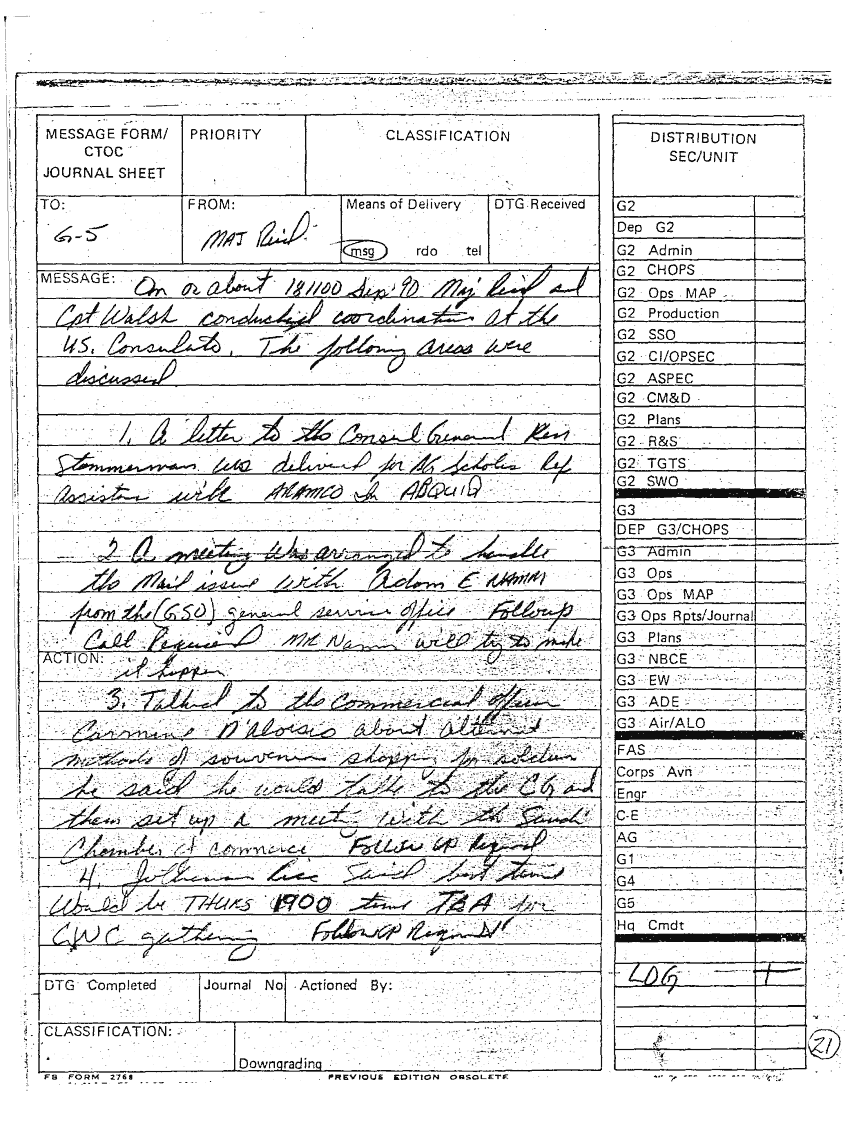 MESSAGE FORM/
CTOC
JOURNAL SHEET
PRIORITY
CLASSIFICATION
TO:
G-5
FROM:
MAJ Reid
Means of Delivery
msg rdo tel
DTG Received
MESSAGE: On or about 181100 Sep 90 Maj Reid and
Cpt Walsh conducted coordination at the
US. Consulate. The following areas were
discussed
1. A letter to the Consul General Ken
Stammerman was delivered for BG Scholes Ref
assistance with ARAMCO in ABQUIQ
2 A meeting was arranged to handle
the Mail issue with Adam E
from the (GSO) general service office Followup
Call Required MR Namm will try to make
ACTION: it happen
3. Talked to the Commercial officer
Carmine D'Aloisio about
methods of souvenir shopping for soldiers
he said he would talk to the CG and
them set up a meeting with the Saudi
Chamber of commerce Follow UP Required
4. said best time
Would be THURS 1900 time TBA for
GWC gathering Follow UP Required
DTG Completed
Journal No
Actioned By:
CLASSIFICATION:
Downgrading
FB FORM 2768
PREVIOUS EDITION OBSOLETE
DISTRIBUTION
SEC/UNIT
G2
Dep G2
G2 Admin
G2 CHOPS
G2 Ops MAP
G2 Production
G2 SSO
G2 CI/OPSEC
G2 ASPEC
G2 CM&D
G2 Plans
G2 R&S
G2 TGTS
G2 SWO
G3
DEP G3/CHOPS
G3 Admin
G3 Ops
G3 Ops MAP
G3 Ops Rpts/Journal
G3 Plans
G3 NBCE
G3 EW
G3 ADE
G3 Air/ALO
FAS
Corps Avn
Engr
C-E
AG
G1
G4
G5
Hq Cmdt
LOG +
21